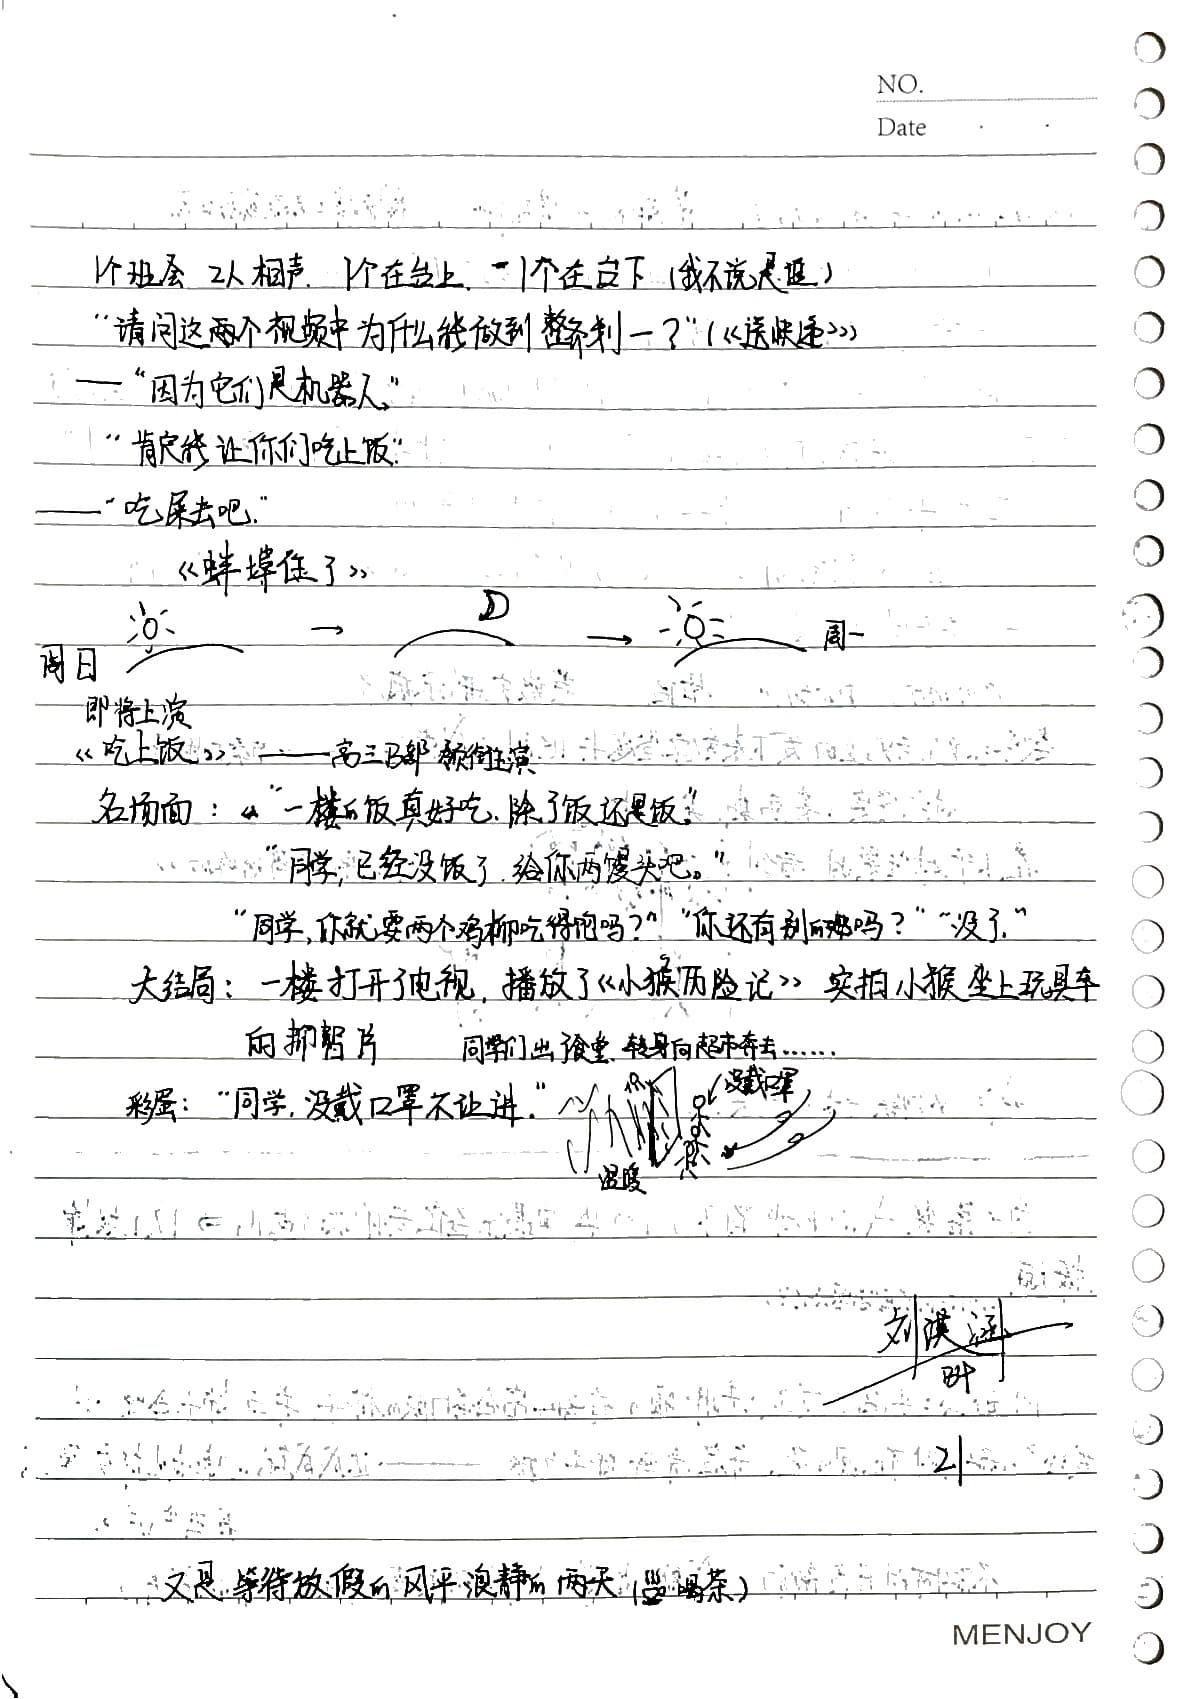 NO.
Date
1个班会 2人相声. 1个在台上. 一1个在台下 (我不说是谁)
"请问这两个视频中为什么能做到整齐划一?"(《送快递》)
——"因为它们是机器人."
"肯定能让你们吃上饭."
——"吃屎去吧."
《蚌埠住了》
周日 → → 周一
即将上演
《吃上饭》 ——高三B部 领衔主演
名场面: "一楼的饭真好吃.除了饭还是饭."
"同学,已经没饭了.给你两馒头吧。"
"同学,你就要两个鸡柳吃得饱吗?" "你还有别的吗?" "没了."
大结局: 一楼打开了电视, 播放了《小猴历险记》 实拍小猴坐上玩具车
的抑智片 同学们出了食堂.转身向超市奔去……
彩蛋: "同学,没戴口罩不让进." 没戴口罩
温暖
刘淇涵
21
又是等待放假的风平浪静的两天 (喝茶)
MENJOY